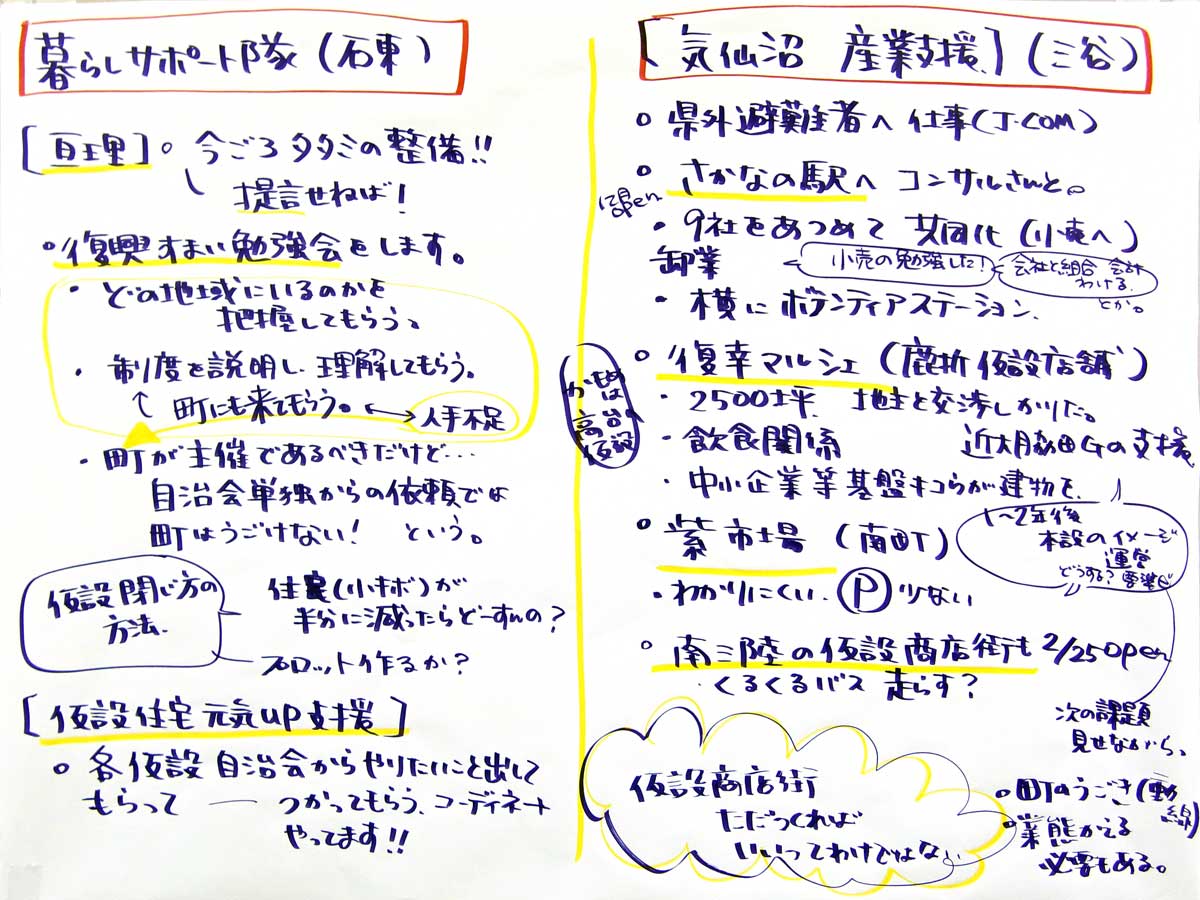 暮らしサポート隊(石東)
[亘理]。今ごろタタミの整備!!
提言せねば!
・復興すまい勉強会をします。
・どの地域にいるのかを
把握してもらう。
・制度を説明し、理解してもらう。
町にも来てもらう。
人手不足
・町が主催であるべきだけど…
自治会単独からの依頼では
町はうごけない! という。
仮設閉じ方の
方法.
住宅(小キボ)が
半分に減ったらどーすんの?
スロット作るか?
[仮設住宅元気up支援]
○各仮設自治会からやりたいこと出して
もらって ― つかってもらう、コーディネート
やってます!!
[気仙沼 産業支援](三谷)
○県外避難者へ仕事(J-COM)
○さかなの駅へ コンサルさんと。
open
・9社をあつめて 共同化(小売へ)
卸業
小売の勉強した!
会社と組合 会計
わける
とか。
・横にボランティアステーション.
○復幸マルシェ(鹿折仮設店舗)
・2500坪. 地主と交渉しかりた。
・飲食関係
Gの支援
・中小企業等基盤キコらが建物を、
かもめは
高台
仮設
1〜2年後
本設のイメージ
運営
どうする?
○紫市場(南町)
・わかりにくい. Ⓟ少ない
○南三陸の仮設商店街も 2/25open
・くるくるバス 走らす?
次の課題
見せながら、
仮設商店街
ただつくれば
いいってわけではない
○町のうごき(動線)
○業態かえる
必要もある。